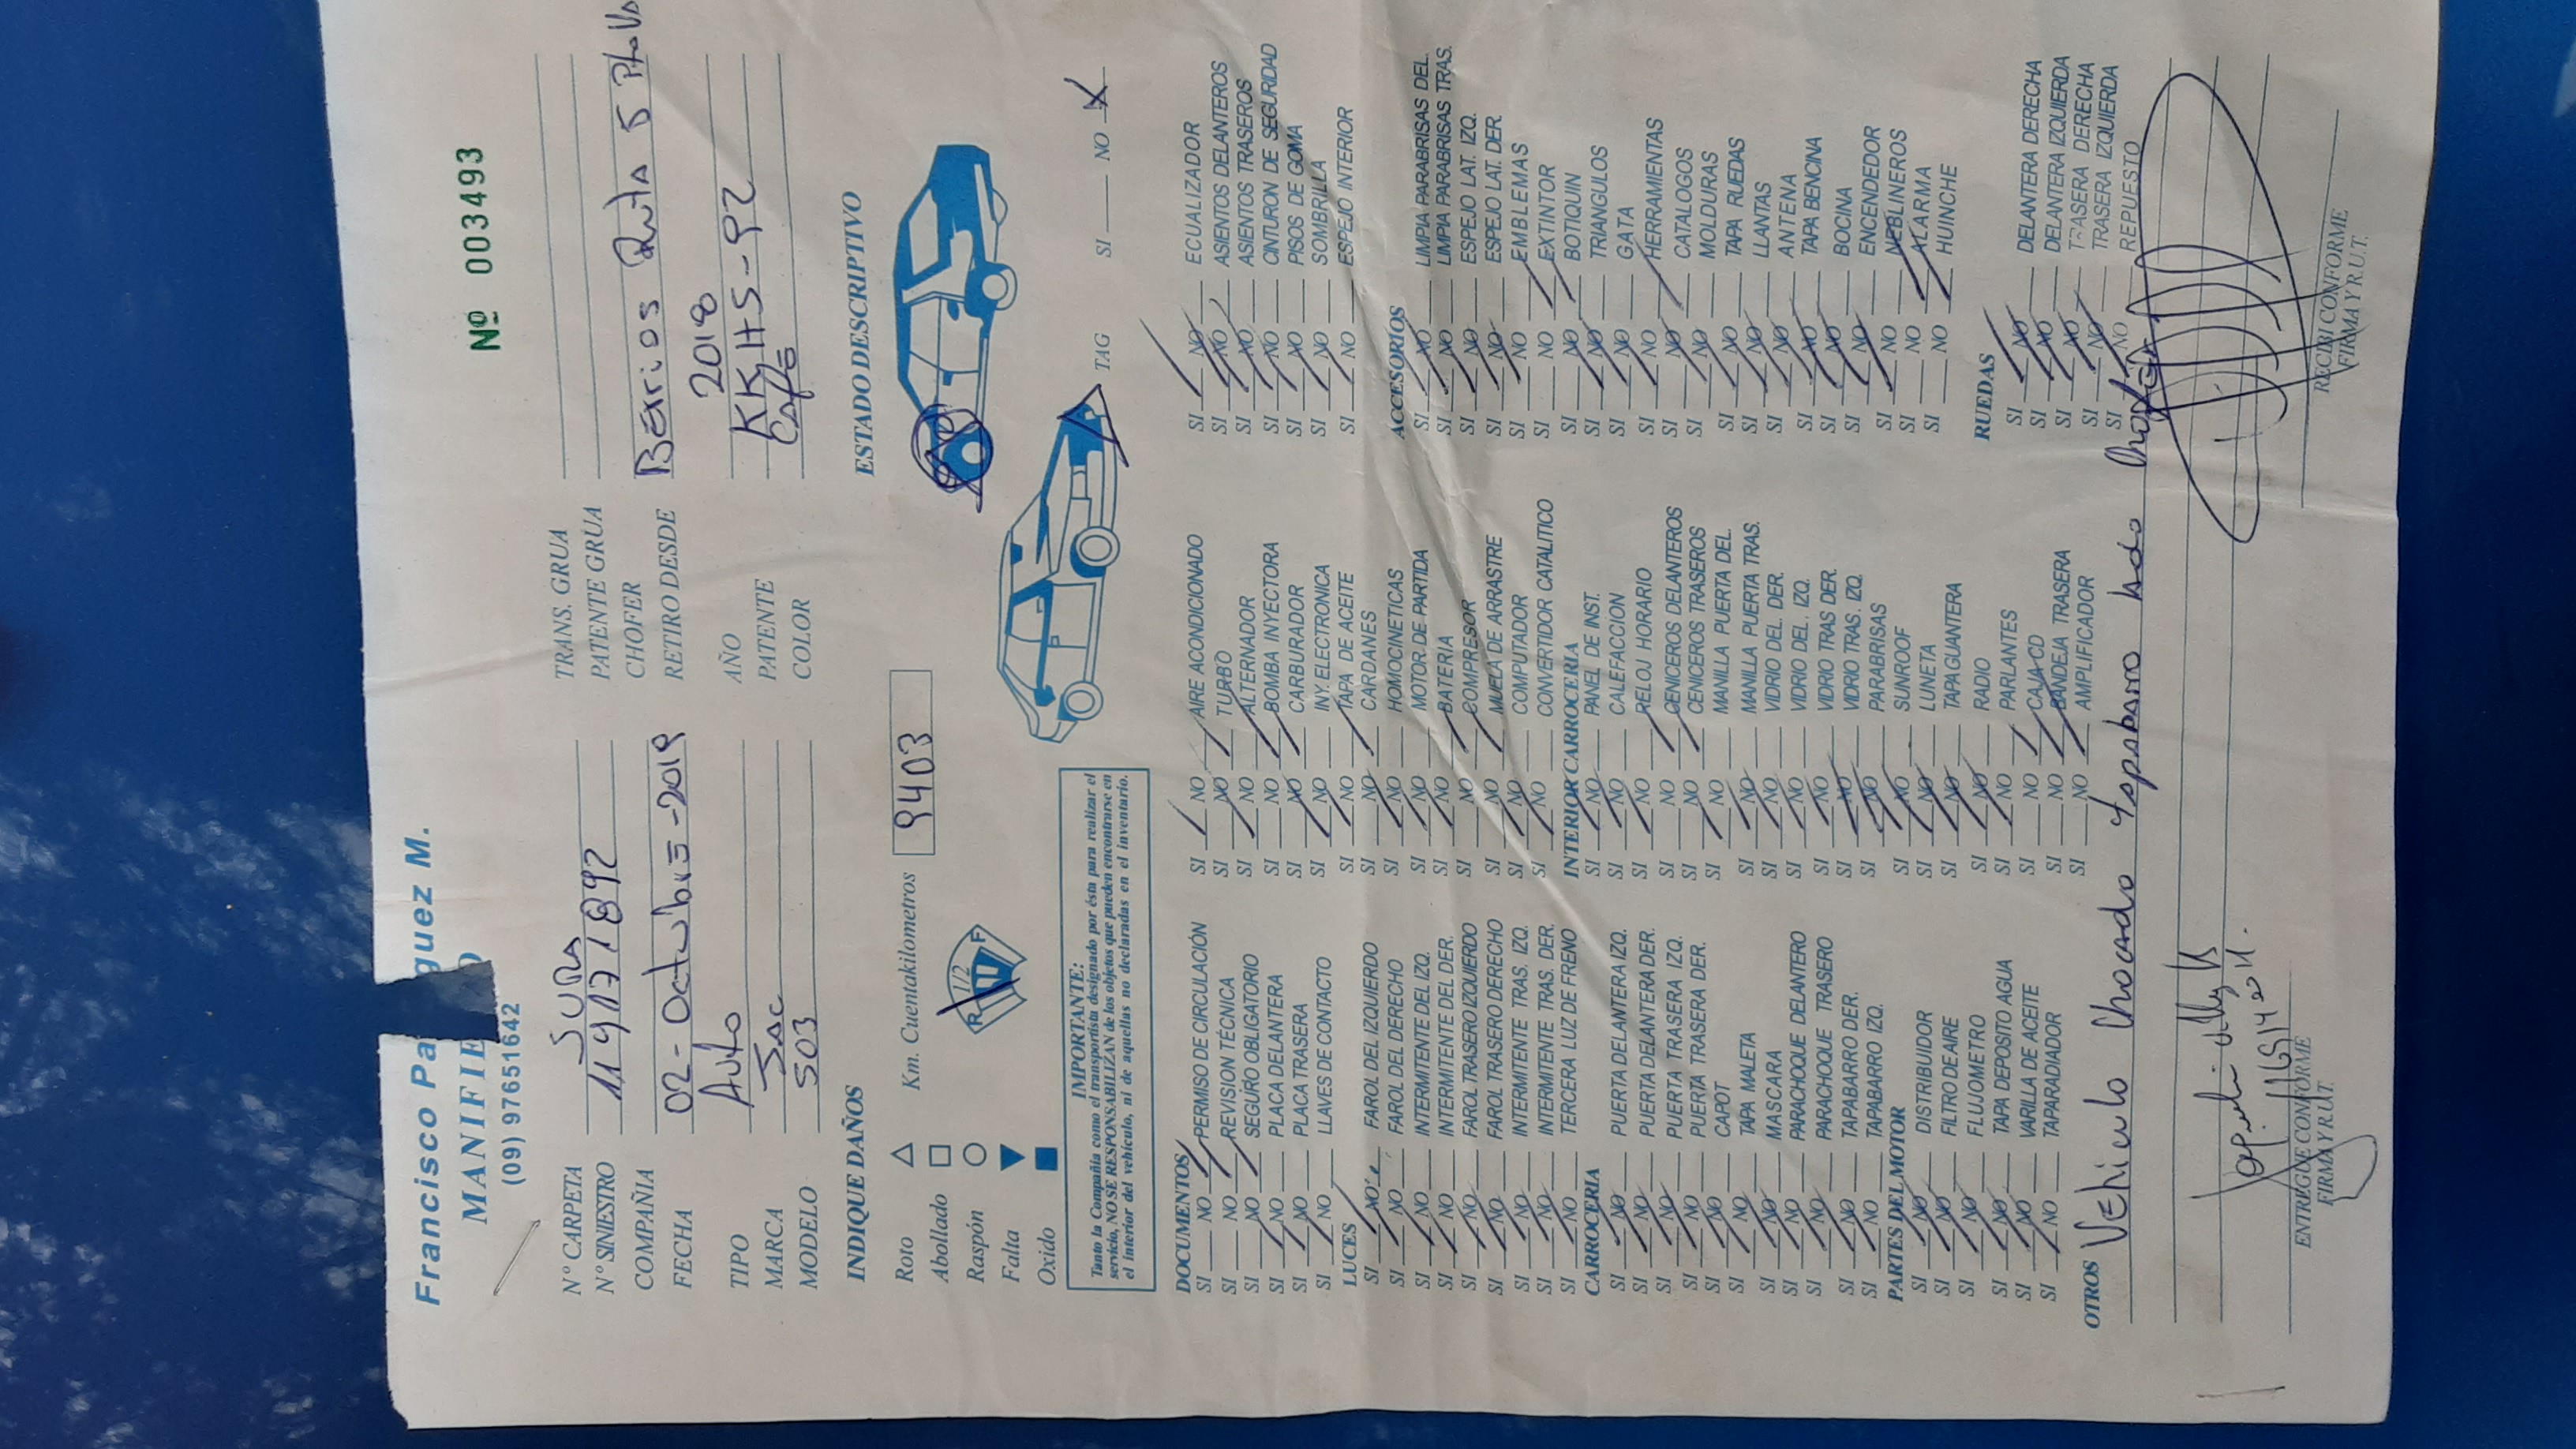 Francisco Pa guez M.
MANIFIE O
(09) 97651642
Nº 003493
Nº CARPETA SURA
Nº SINIESTRO
COMPAÑIA
FECHA 02-Octubre-2019
TIPO Auto
MARCA Jac
MODELO S03
TRANS. GRUA
PATENTE GRÚA
CHOFER
RETIRO DESDE Berrios Ruta 5
AÑO 2018
PATENTE KKHS-92
COLOR Cafe
INDIQUE DAÑOS
Roto
Abollado
Raspón
Falta
Oxido
Km. Cuentakilometros 9403
R 1/2 F
ESTADO DESCRIPTIVO
TAG SI NO X
IMPORTANTE:
Tanto la Compañía como el transportista designado por ésta para realizar el
servicio, NO SE RESPONSABILIZAN de los objetos que pueden encontrarse en
el interior del vehículo, ni de aquellas no declaradas en el inventario.
DOCUMENTOS
SI NO PERMISO DE CIRCULACIÓN
SI NO REVISION TÉCNICA
SI NO SEGURO OBLIGATORIO
SI NO PLACA DELANTERA
SI NO PLACA TRASERA
SI NO LLAVES DE CONTACTO
LUCES
SI NO FAROL DEL IZQUIERDO
SI NO FAROL DEL DERECHO
SI NO INTERMITENTE DEL IZQ.
SI NO INTERMITENTE DEL DER.
SI NO FAROL TRASERO IZQUIERDO
SI NO FAROL TRASERO DERECHO
SI NO INTERMITENTE TRAS. IZQ.
SI NO INTERMITENTE TRAS. DER.
SI NO TERCERA LUZ DE FRENO
CARROCERIA
SI NO PUERTA DELANTERA IZQ.
SI NO PUERTA DELANTERA DER.
SI NO PUERTA TRASERA IZQ.
SI NO PUERTA TRASERA DER.
SI NO CAPOT
SI NO TAPA MALETA
SI NO MASCARA
SI NO PARACHOQUE DELANTERO
SI NO PARACHOQUE TRASERO
SI NO TAPABARRO DER.
SI NO TAPABARRO IZQ.
PARTES DEL MOTOR
SI NO DISTRIBUIDOR
SI NO FILTRO DE AIRE
SI NO FLUJOMETRO
SI NO TAPA DEPOSITO AGUA
SI NO VARILLA DE ACEITE
SI NO TAPARADIADOR
SI NO AIRE ACONDICIONADO
SI NO TURBO
SI NO ALTERNADOR
SI NO BOMBA INYECTORA
SI NO CARBURADOR
SI NO INY. ELECTRONICA
SI NO TAPA DE ACEITE
SI NO CARDANES
SI NO HOMOCINETICAS
SI NO MOTOR DE PARTIDA
SI NO BATERIA
SI NO COMPRESOR
SI NO MUELA DE ARRASTRE
SI NO COMPUTADOR
SI NO CONVERTIDOR CATALITICO
INTERIOR CARROCERIA
SI NO PANEL DE INST.
SI NO CALEFACCION
SI NO RELOJ HORARIO
SI NO CENICEROS DELANTEROS
SI NO CENICEROS TRASEROS
SI NO MANILLA PUERTA DEL.
SI NO MANILLA PUERTA TRAS.
SI NO VIDRIO DEL. DER.
SI NO VIDRIO DEL. IZQ.
SI NO VIDRIO TRAS DER.
SI NO VIDRIO TRAS. IZQ.
SI NO PARABRISAS
SI NO SUNROOF
SI NO LUNETA
SI NO TAPA GUANTERA
SI NO RADIO
SI NO PARLANTES
SI NO CAJA CD
SI NO BANDEJA TRASERA
SI NO AMPLIFICADOR
SI NO ECUALIZADOR
SI NO ASIENTOS DELANTEROS
SI NO ASIENTOS TRASEROS
SI NO CINTURON DE SEGURIDAD
SI NO PISOS DE GOMA
SI NO SOMBRILLA
SI NO ESPEJO INTERIOR
ACCESORIOS
SI NO LIMPIA PARABRISAS DEL.
SI NO LIMPIA PARABRISAS TRAS.
SI NO ESPEJO LAT. IZQ.
SI NO ESPEJO LAT. DER.
SI NO EMBLEMAS
SI NO EXTINTOR
SI NO BOTIQUIN
SI NO TRIANGULOS
SI NO GATA
SI NO HERRAMIENTAS
SI NO CATALOGOS
SI NO MOLDURAS
SI NO TAPA RUEDAS
SI NO LLANTAS
SI NO ANTENA
SI NO TAPA BENCINA
SI NO BOCINA
SI NO ENCENDEDOR
SI NO NEBLINEROS
SI NO ALARMA
SI NO HUINCHE
RUEDAS
SI NO DELANTERA DERECHA
SI NO DELANTERA IZQUIERDA
SI NO TRASERA DERECHA
SI NO TRASERA IZQUIERDA
SI NO REPUESTO
OTROS Vehiculo Chocado tapabarro lado Chofer
ENTREGUE CONFORME
FIRMA Y R.U.T.
RECIBI CONFORME
FIRMA Y R.U.T.